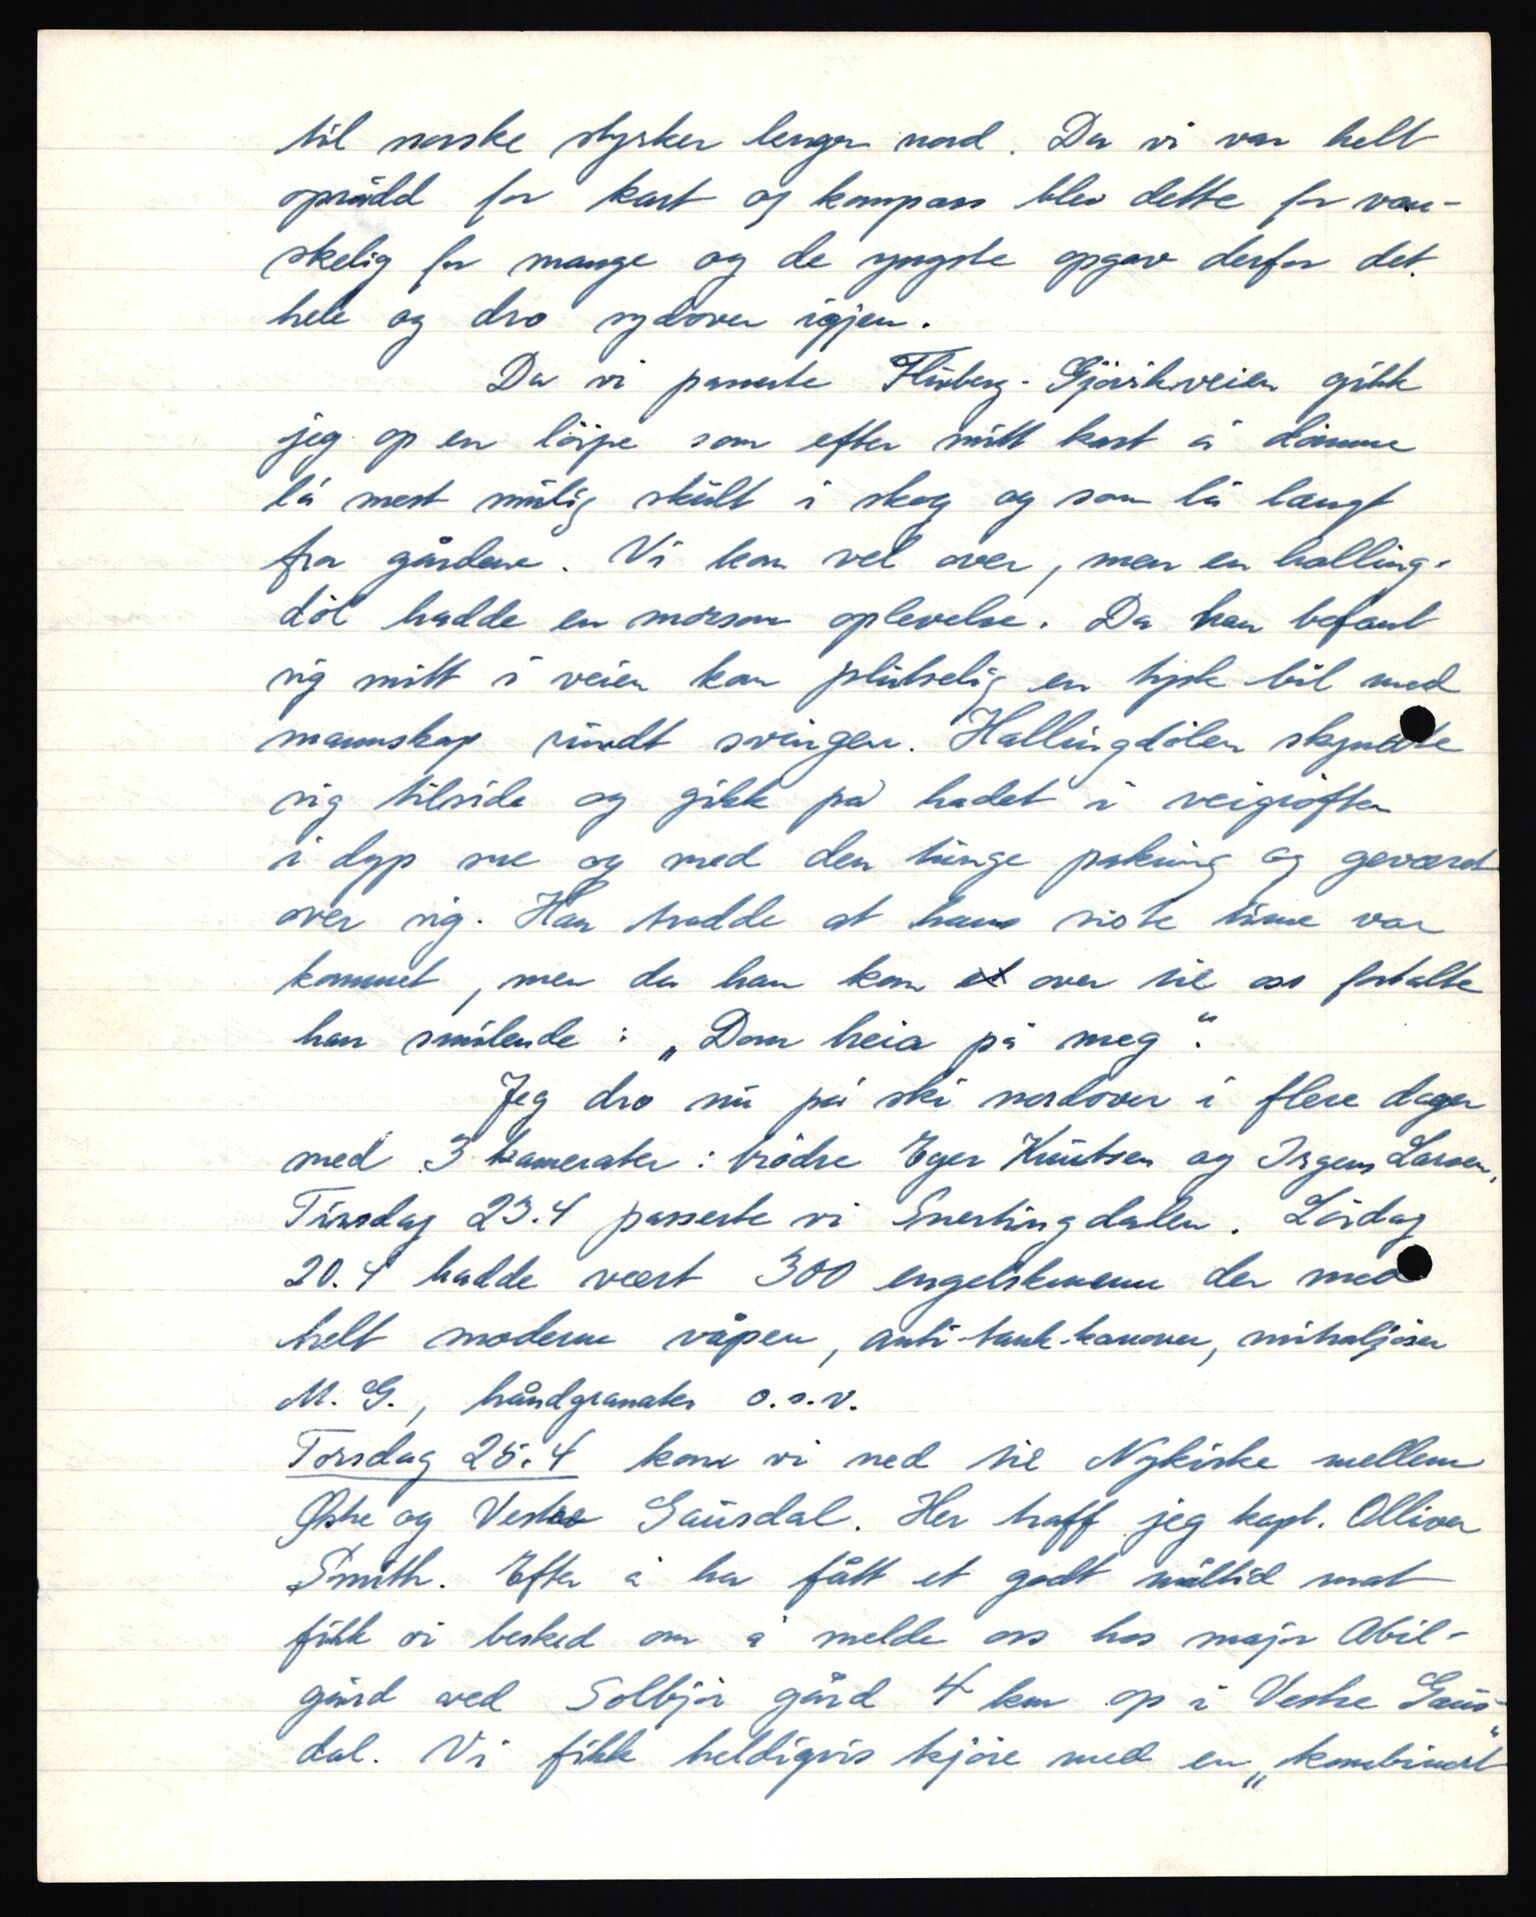 til norske styrker lenger nord. Da vi var helt
oprådd for kart og kompass blev dette for van-
skelig for mange og de yngste opgav derfor det
hele og dro sydover igjen.
Da vi passerte Fluberg-Gjövikveien gikk
jeg op en löipe som efter mitt kart å dömme
lå mest mulig skult i skog og som lå langt
fra gårdene. Vi kom vel over, men en halling-
döl hadde en morsom oplevelse. Da han befant
sig mitt i veien kom plutselig en tysk bil med
mannskap rundt svingen. Hallingdölen skyndte
sig tilside og gikk på hodet i veigröften
i dyp sne og med den tunge pakning og geværet
over sig. Han trodde at hans siste time var
kommet, men da han kom over til oss fortalte
han smilende: „Dom heia på meg".
Jeg dro nu på ski nordover i flere dager
med 3 kamerater: brödre Eger Knutsen og Irgens Larsen.
Tirsdag 23.4 passerte vi Snertingdalen. Lördag
20.4 hadde vært 300 engelskmenn der med
helt moderne våpen, anti-tank-kanoner, mitraljöser
M.G., håndgranater o.s.v.
Torsdag 25.4 kom vi ned til Nykirke mellem
Östre og Vestre Gausdal. Her traff jeg kapt. Olliver
Smith. Efter å ha fått et godt måltid mat
fikk vi besked om å melde oss hos major Abil-
gård ved Solbjör gård 4 km op i Vestre Gaus-
dal. Vi fikk heldigvis kjöre med en „kombinert"